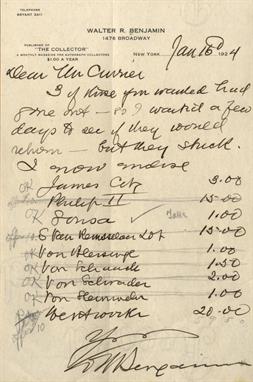 TELEPHONE
BRYANT 5411
WALTER R. BENJAMIN
1476 BROADWAY
PUBLISHER OF
"THE COLLECTOR"
A MONTHLY MAGAZINE FOR AUTOGRAPH COLLECTORS
$1.00 A YEAR
NEW YORK, Jan 15 1924
Dear Mr Curier
3 of those you wanted had
gone out – so I waited a few
days to see if they would
return – but they stuck.
I now enclose
OK James City 3.00
Philip II 15.00
OK Sousa ✓ 1.00
S Van Rensselaer Lot 15.00
OK Von 1.00
OK Von Schaack 1.50
OK Von Schrader 2.00
OK Von Steinwehr 1.00
Wentworth 20.00
Yrs
W R Benjamin